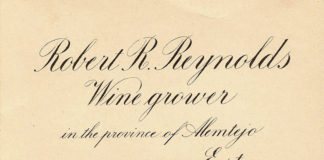 Robert R. Reynolds
Wine grower
in the province of Alemtejo